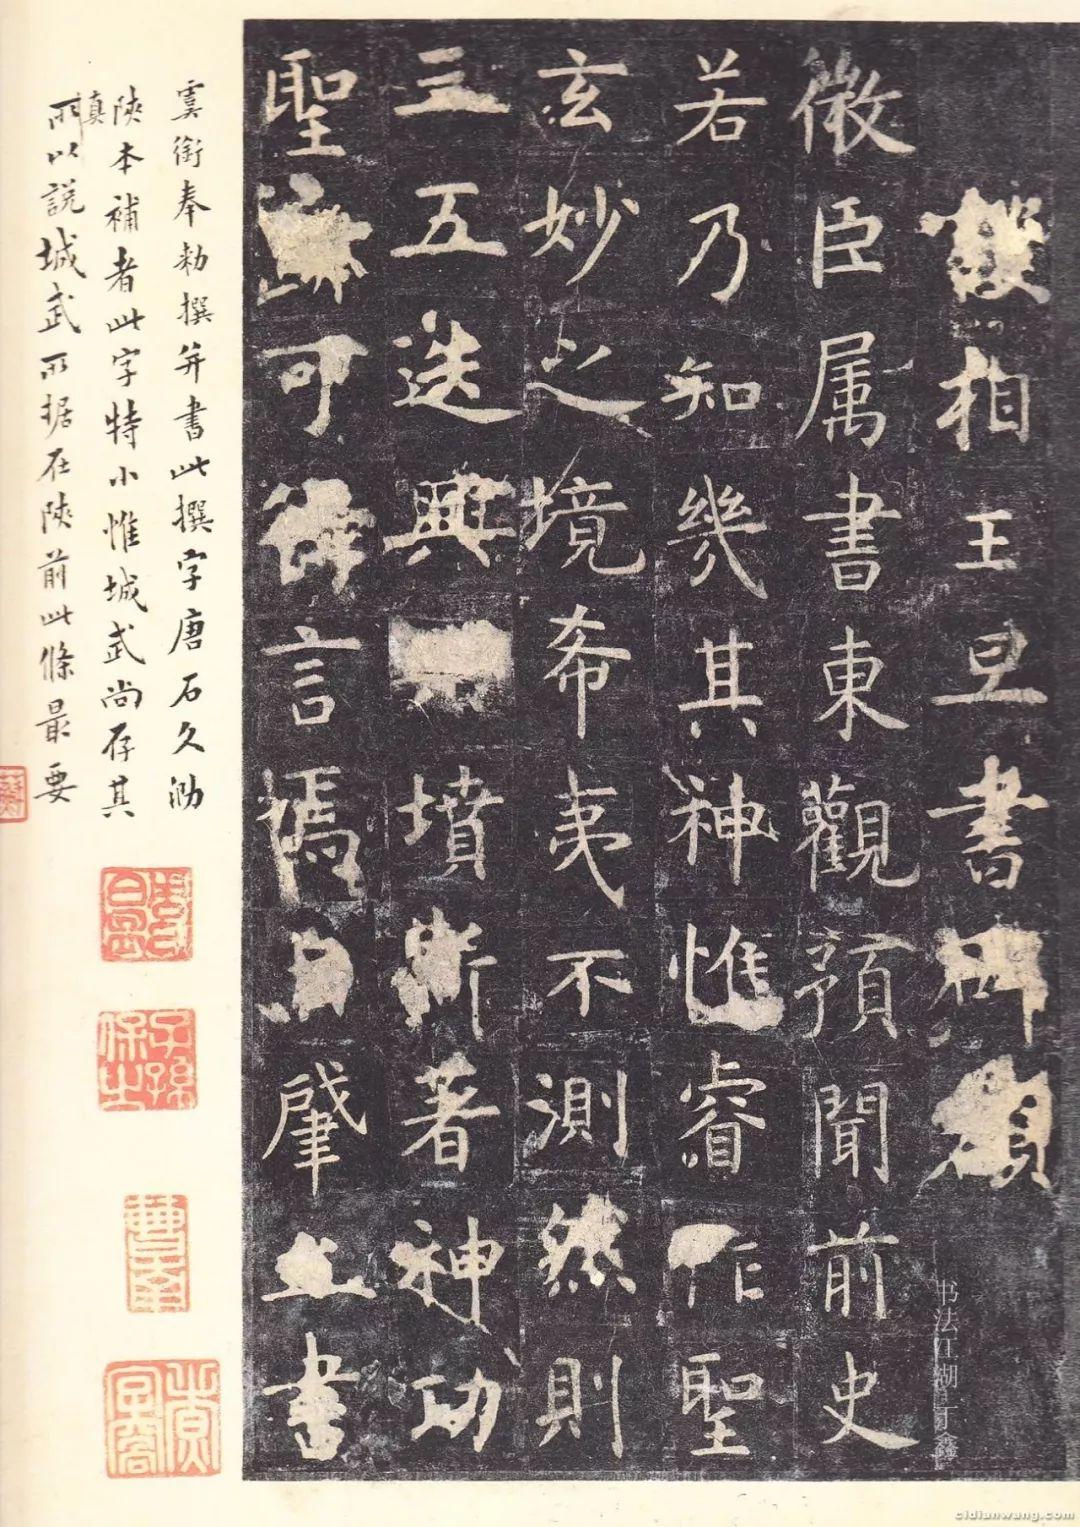 護相王旦書碑額
微臣属書東觀預聞前史
若乃知幾其神惟睿作聖
玄妙之境希夷不測然則
三五迭興墳斯著神功
聖可得言焉自肇立書
虞銜奉勅撰并書此撰字唐石久泐
陝本補者此字特小惟城武尚存其
真所以說城武所据在陝前此條最要
子孫保之
书法江湖 丁鑫
cidianwang.com